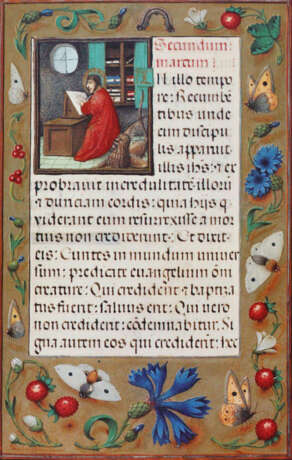 Secundum
marcum
In illo tempo
re: Recumbē
tibus unde
cim discipul
is apparuit
illis ihs: et ex
probravit incredulitatē illorū
et duriciam cordis: quia hijs q̄
viderant eum resurrexisse a mor
tuis non crediderunt: Et dixit
eis: Euntes in mundum univer
sum: predicate euangelium om̄i
creature: Qui crediderit et baptiza
tus fuerit: saluus erit: Qui uero
non crediderit: cōdemnabitur. Si
gna autem eos qui crediderīt: hec